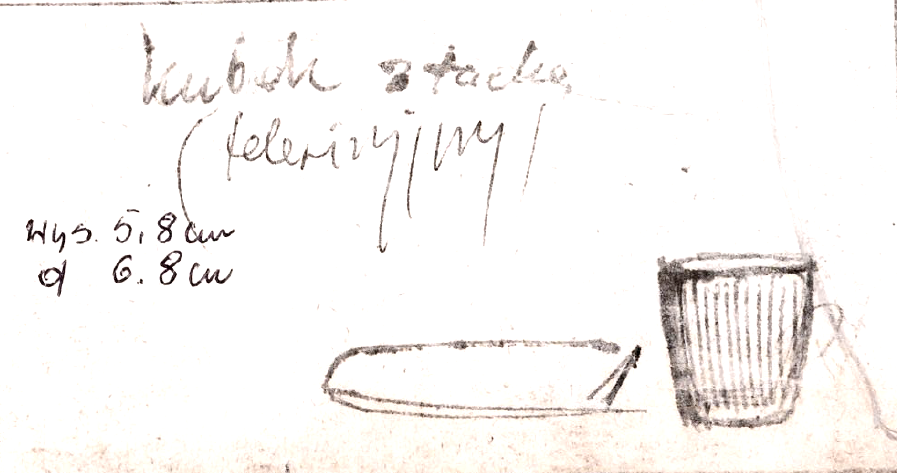 kubek z tacką
(telewizyjny)
wys. 5,8 cm
d 6.8 cm